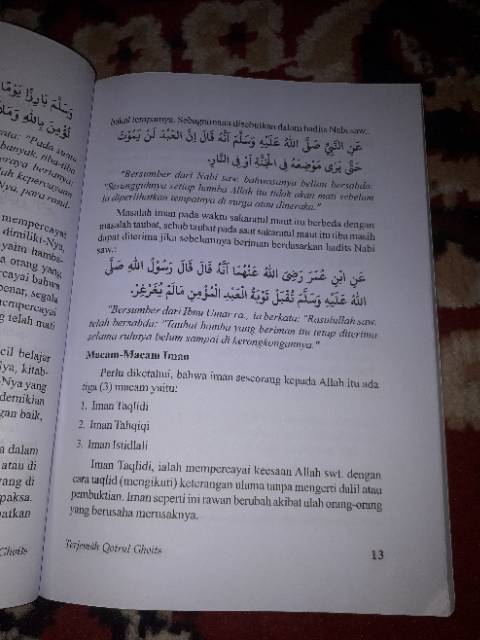 وَسَلَّمَ بَارِزًا يَوْمًا
تُؤْمِنَ بِاللهِ
ata: "Pada suatu
banyak, tiba-tiba
bertanya:
kepercayaan
Nya, para rasul-
mempercayai
dimiliki-Nya,
yaitu hamba-
a orang yang
cayai bahwa
benar, segala
mempercayai
g telah mati
cil belajar
ya, kitab-
-Nya yang
demikian
gan baik,
a dalam
atau di
rang di
paksa.
batkan
Ghoits
bakal tempatnya. Sebagaimana disebutkan dalam hadits Nabi saw.:
عَنِ النَّبِيِّ صَلَّى اللهُ عَلَيْهِ وَسَلَّمَ أَنَّهُ قَالَ إِنَّ الْعَبْدَ لَنْ يَمُوْتَ
حَتَّى يَرَى مَوْضِعَهُ فِى الْجَنَّةِ أَوْ فِى النَّارِ.
"Bersumber dari Nabi saw. bahwasanya beliau bersabda:
"Sesungguhnya setiap hamba Allah itu tidak akan mati sebelum
ia diperlihatkan tempatnya di surga atau dineraka."
Masalah iman pada waktu sakaratul maut itu berbeda dengan
masalah taubat, sebab taubat pada saat sakaratul maut itu tiba masih
dapat diterima jika sebelumnya beriman berdasarkan hadits Nabi
saw.:
عَنِ ابْنِ عُمَرَ رَضِىَ اللهُ عَنْهُمَا أَنَّهُ قَالَ قَالَ رَسُوْلُ اللهِ صَلَّى
اللهُ عَلَيْهِ وَسَلَّمَ تُقْبَلُ تَوْبَةُ الْعَبْدِ الْمُؤْمِنِ مَالَمْ يُغَرْغِرْ.
"Bersumber dari Ibnu Umar ra., ia berkata: "Rasulullah saw.
telah bersabda: "Taubat hamba yang beriman itu tetap diterima
selama ruhnya belum sampai di kerongkongannya."
Macam-Macam Iman
Perlu diketahui, bahwa iman seseorang kepada Allah itu ada
tiga (3) macam yaitu:
1. Iman Taqlidi
2. Iman Tahqiqi
3. Iman Istidlali
Iman Taqlidi, ialah mempercayai keesaan Allah swt. dengan
cara taqlid (mengikuti) keterangan ulama tanpa mengerti dalil atau
pembuktian. Iman seperti ini rawan berubah akibat ulah orang-orang
yang berusaha merusaknya.
Terjemah Qotrul Ghoits
13